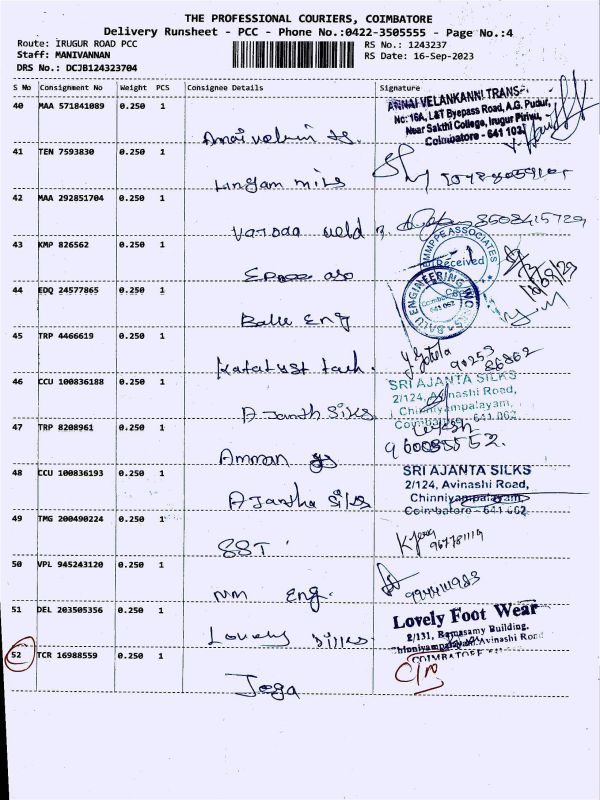 THE PROFESSIONAL COURIERS, COIMBATORE
Delivery Runsheet - PCC - Phone No.:0422-3505555 - Page No.:4
Route: IRUGUR ROAD PCC
RS No.: 1243237
Staff: MANIVANNAN
RS Date: 16-Sep-2023
DRS No.: DCJB124323704
S No Consignment No Weight PCS Consignee Details Signature
40 MAA 571841089 0.250 1
ANNAI VELANKANNI TRANS
No: 16A, L&T Byepass Road, A.G. Pudur,
Near Sakthi College, Irugur Pirivu,
Coimbatore - 641 103
41 TEN 7593830 0.250 1
Lingam mills
42 MAA 292851704 0.250 1
Varoda weld
8608415729
43 KMP 826562 0.250 1
MMPPE ASSOCIATES
Received
44 EDQ 24577865 0.250 1
Balu Eng
BALU ENGINEERING
Coimbatore
641 062
45 TRP 4466619 0.250 1
Katalyst tech.
90253
86862
46 CCU 100836188 0.250 1
AJanth Silks
SRI AJANTA SILKS
2/124, Avinashi Road,
Chinniyampalayam,
Coimbatore - 641 062
47 TRP 8208961 0.250 1
Amman
48 CCU 100836193 0.250 1
AJantha Silks
SRI AJANTA SILKS
2/124, Avinashi Road,
Chinniyampalayam,
Coimbatore - 641 062
49 TMG 200490224 0.250 1
SST
50 VPL 945243120 0.250 1
NM Eng.
9944111983
51 DEL 203505356 0.250 1
Lovely Silks
Lovely Foot Wear
2/131, Ramasamy Building,
Chinniyampalayam, Avinashi Road
COIMBATORE
52 TCR 16988559 0.250 1
Joga